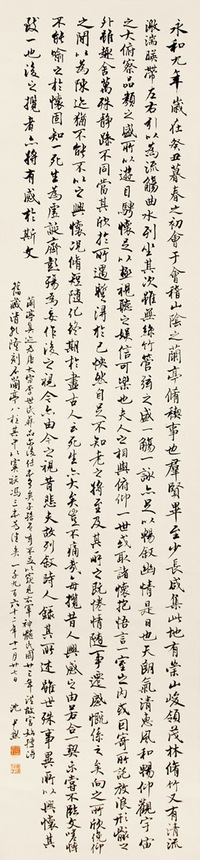 永和九年歲在癸丑暮春之初會于會稽山陰之蘭亭脩稧事也羣賢畢至少長咸集此地有崇山峻領茂林脩竹又有清流
激湍映帶左右引以為流觴曲水列坐其次雖無絲竹管弦之盛一觴一詠亦足以暢叙幽情是日也天朗氣清惠風和暢仰觀宇宙
之大俯察品類之盛所以遊目騁懷足以極視聽之娛信可樂也夫人之相與俯仰一世或取諸懷抱悟言一室之內或因寄所託放浪形骸之
外雖趣舍萬殊静躁不同當其欣於所遇蹔得於己怏然自足不知老之將至及其所之既惓情隨事遷感慨係之矣向之所欣俛仰
之間以為陳迹猶不能不以之興懷況脩短隨化終期於盡古人云死生亦大矣豈不痛哉每攬昔人興感之由若合一契未嘗不臨文嗟悼
不能喻之於懷固知一死生為虛誕齊彭殤為妄作後之視今亦由今之視昔悲夫故列叙時人録其所述雖世殊事異所以興懷其
致一也後之攬者亦將有感於斯文
沈尹默